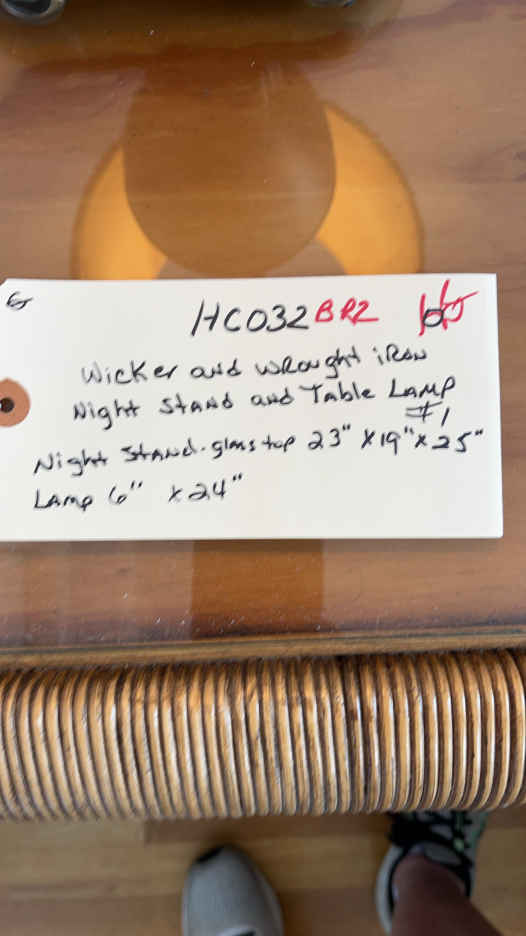 G
HC032 BR2
Wicker and wrought iron
Night Stand and Table Lamp
#1
Night Stand - glass top 23" x 19" x 25"
Lamp 6" x 24"